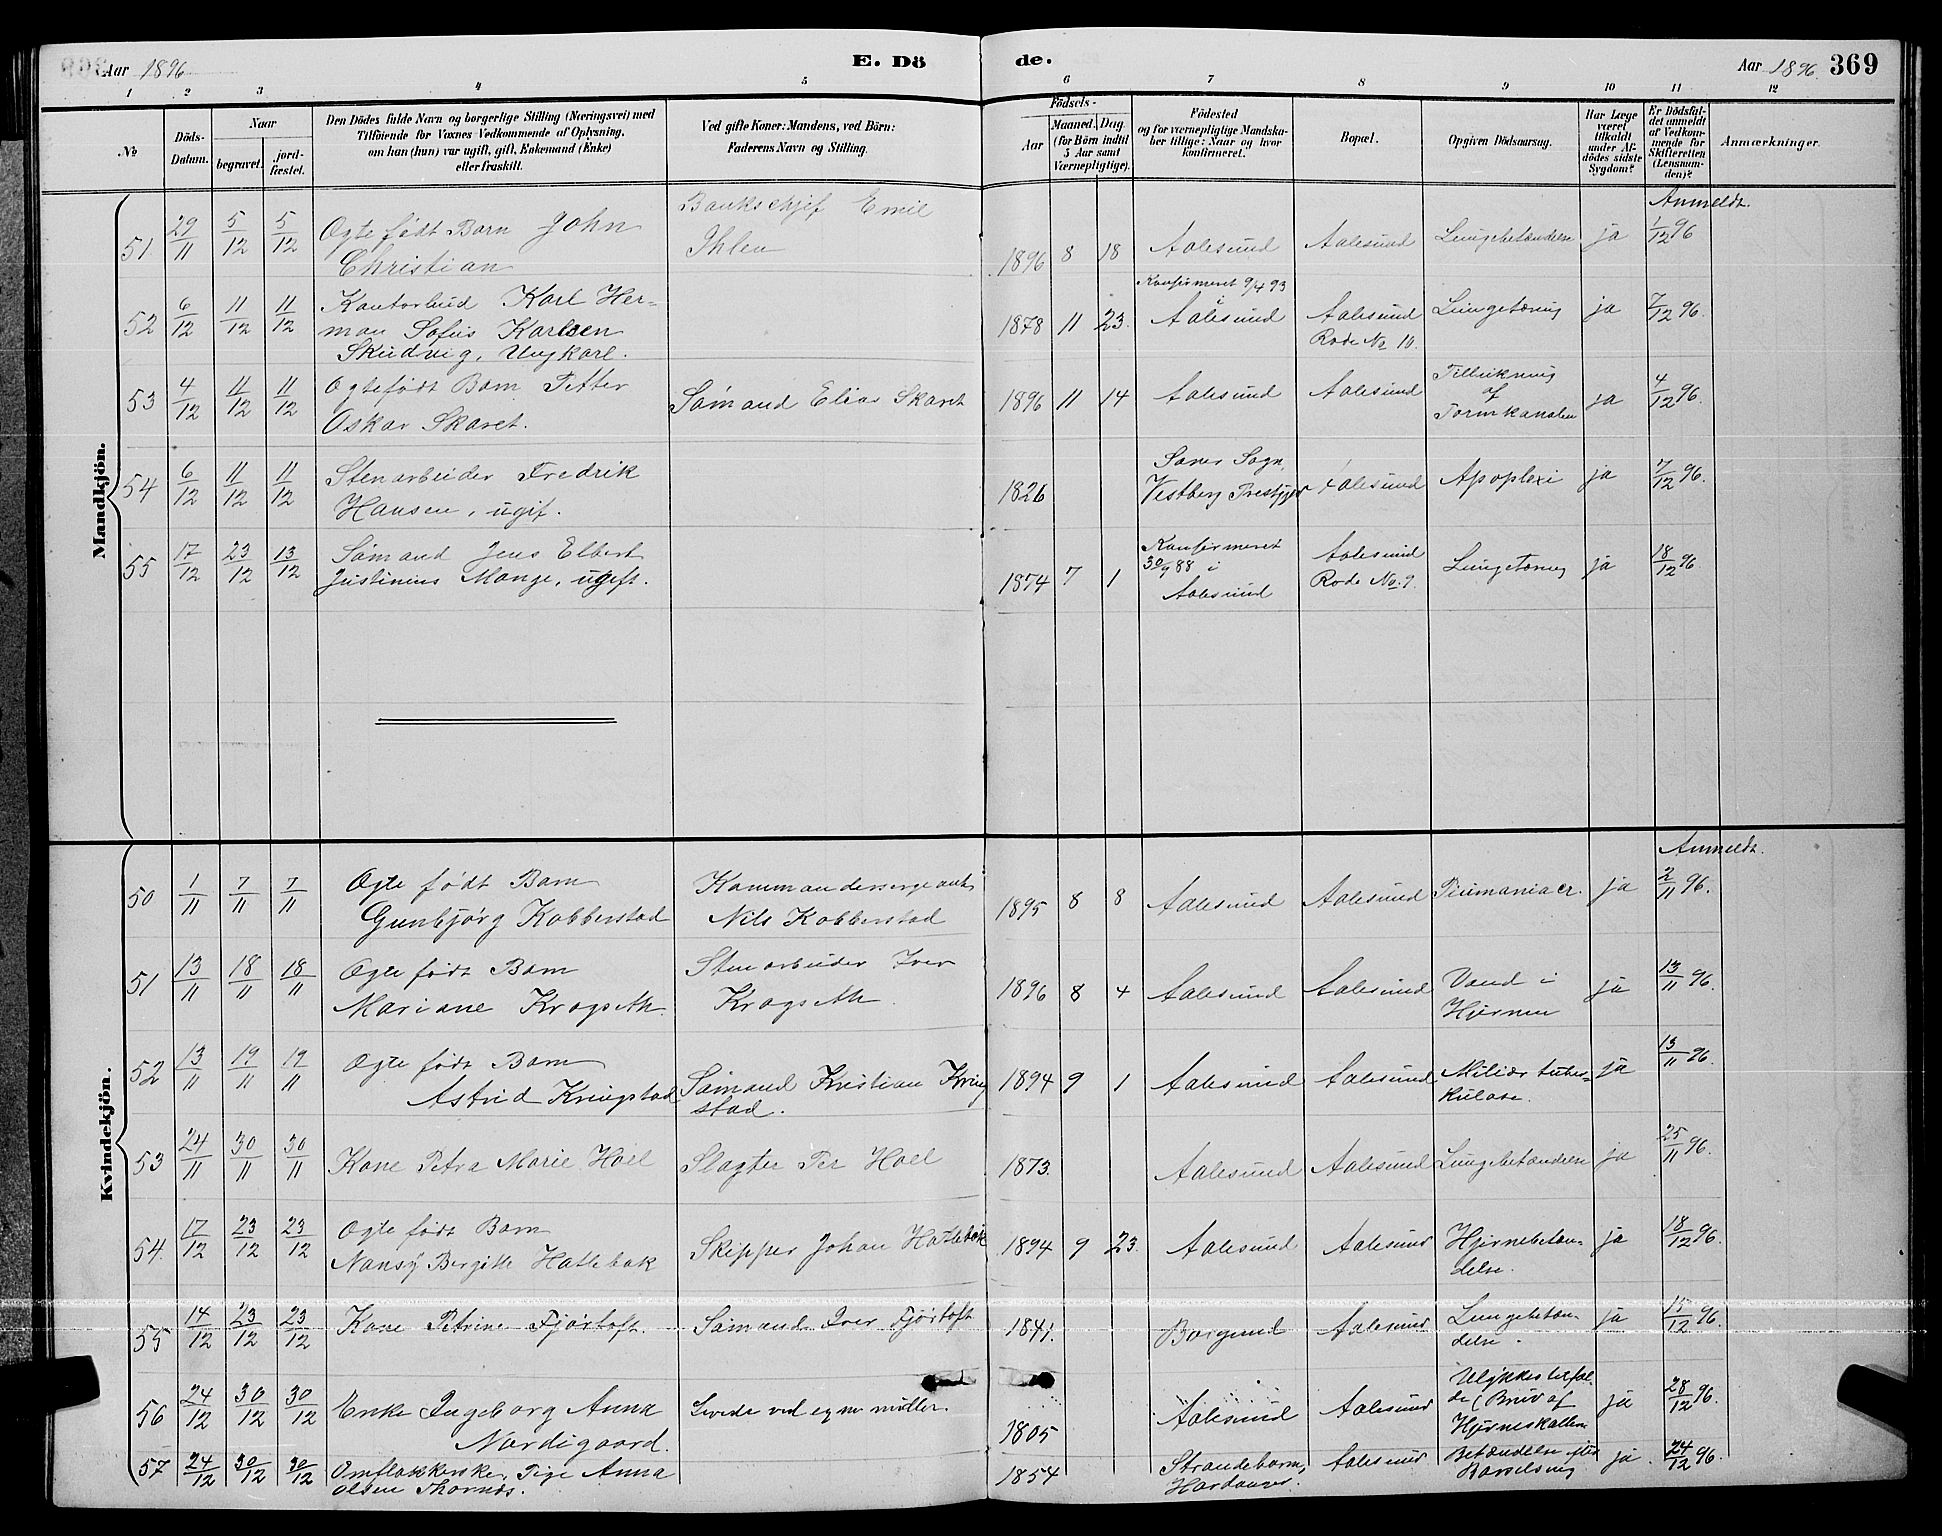 Aar 1896
E. Dö
de.
Aar 1896.
369
1 2 3 4 5 6 7 8 9 10 11 12
No
Döds-
Datum.
Naar
begravet.
jord-
fæstet.
Den Dödes fulde Navn og borgerlige Stilling (Næringsvei) med
Tilföiende for Voxnes Vedkommende af Oplysning,
om han (hun) var ugift, gift, Enkemand (Enke)
eller fraskilt.
Ved gifte Koner: Mandens, ved Börn:
Faderens Navn og Stilling.
Födsels-
Aar
Maaned. Dag.
(for Börn indtil
5 Aar samt
Værnepligtige).
Födested
og for værnepligtige Mandska-
ber tillige: Naar og hvor
konfirmeret.
Bopæl.
Opgiven Dödsaarsag.
Har Læge
været
tilkaldt
under Af-
dödes sidste
Sygdom?
Er Dödsfal-
det anmeldt
af Vedkom-
mende for
Skifteretten
(Lensman-
den)?
Anmærkninger.
Mandkjön.
Anmeldt.
51 29/11 5/12 5/12 Ogte født Barn John
Christian
Bankschjef Emil
Ihlen
1896 8 18 Aalesund Aalesund Lungebetændelse ja 1/12 96
52 6/12 11/12 11/12 Kontorbud Karl Her-
man Sofus Karlsen
Skudvig, Ungkarl.
1878 11 23. Konfirmeret 9/4 93
i
Aalesund
Aalesund
Rode No 10.
Lungetæring ja 7/12 96.
53 4/12 11/12 11/12 Ogtefødt Barn Petter
Oskar Skaret.
Sømand Elias Skaret
1896 11 14 Aalesund Aalesund
Tillukning
af
Tarmkanalen
ja 4/12 96.
54 6/12 11/12 11/12 Stenarbeider Fredrik
Hansen, ugif.
1826
Sogn,
Vestberg
Aalesund Apoplexi ja 7/12 96.
55 17/12 23/12 13/12 Sømand Jens Elbert
Justinius Mange, ugift.
1874 7 1
Konfirmeret
30/9 88 i
Aalesund
Aalesund
Rode No. 9.
Lungetæring ja 18/12 96
Kvindekjön.
Anmeldt.
50 1/11 7/11 7/11 Ogte født Barn
Gunbjørg Kobberstad
Kommandersergeant
Nils Kobberstad
1895 8 8 Aalesund Aalesund ja 2/11 96.
51 13/11 18/11 18/11 Ogte født Barn
Mariane Krogseth.
Stenarbeider Iver
Krogseth.
1896 8 4 Aalesund Aalesund Vand i
Hjernen
ja 13/11 96.
52 13/11 19/11 19/11 Ogte født Barn
Astrid Kringstad
Sømand Kristian Kring
stad.
1894 9 1 Aalesund Aalesund Miliær tuber-
kulose.
ja 13/11 96.
53 24/11 30/11 30/11 Kone Petra Marie Hoel
Slagter Per Hoel
1873. Aalesund Aalesund Lungebetændelse ja 25/11 96.
54. 17/12 23/12 23/12 Ogte født Barn
Nansy Bergitte Hatlebak
Skipper Johan Hatlebak
1894 9 23. Aalesund Aalesund Hjernebetæn-
delse.
ja 18/12 96.
55 14/12 23/12 23/12 Kone Petrine Fjørtoft.
Sømand Iver Fjørtoft
1841. Borgund Aalesund Lungebetæn-
delse.
ja 15/12 96.
56 24/12 30/12 30/12 Enke Ingeborg Anna
Nordigaard.
Levede ved egne midler.
1805 Aalesund Aalesund
Ulykkestilfæl-
de (Brud af
Hjerneskallen
ja 28/12 96.
57 24/12 30/12 30/12 Omflakkerske, Pige Anna
Olsen Thornæs.
1854 Strandebarm,
Hardanger.
Aalesund Betændelse efter
Barselseng
ja. 24/12 96.